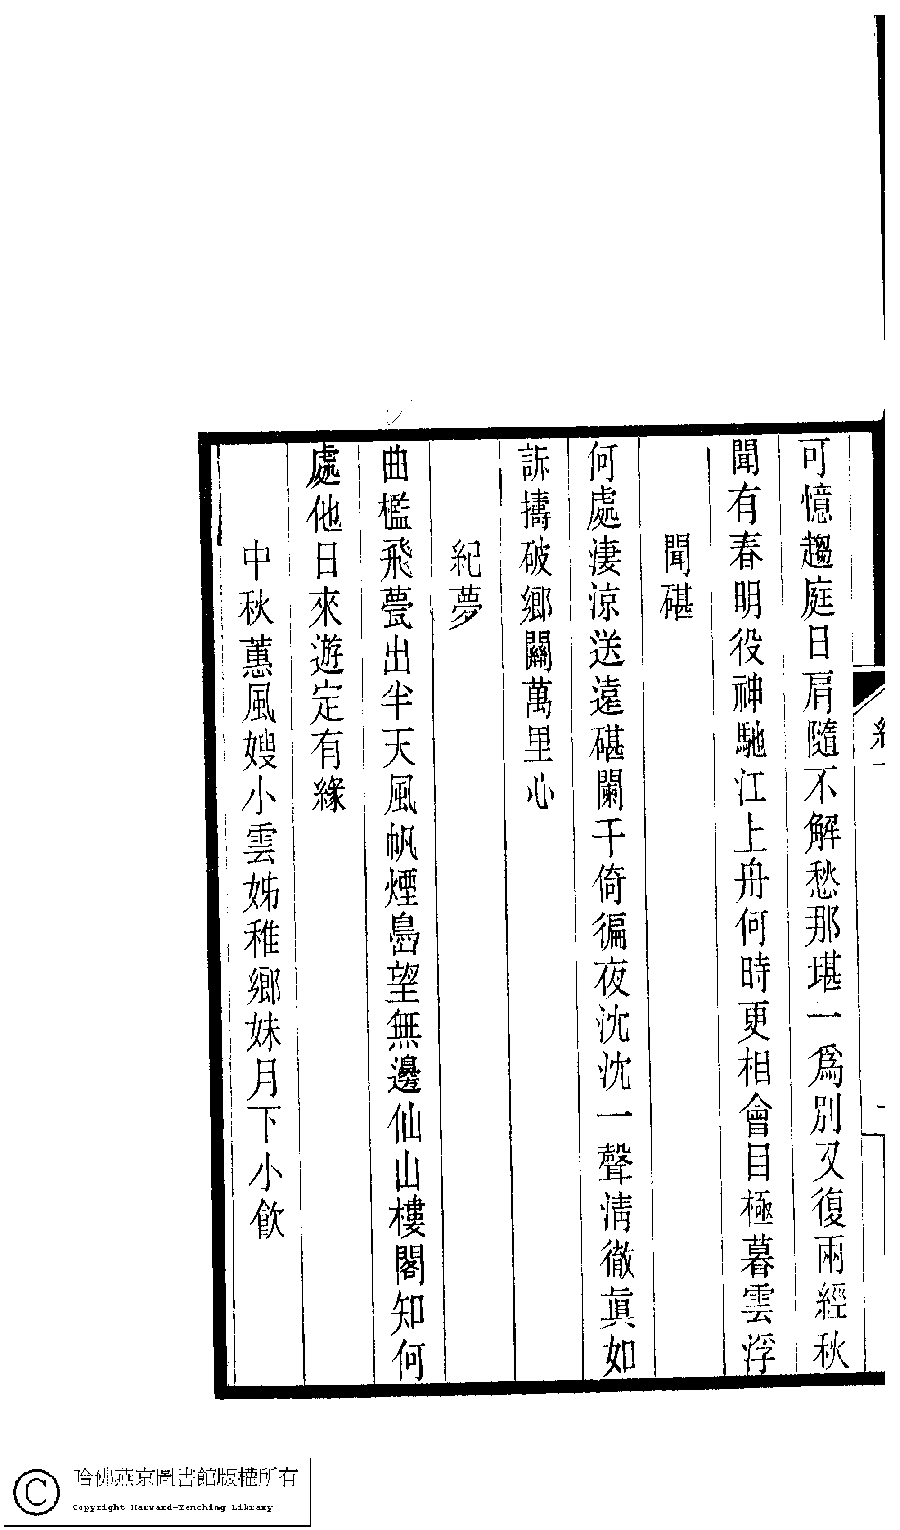 可憶趨庭日肩隨不解愁那堪一爲別又復兩經秋
聞有春明役神馳江上舟何時更相會目極暮雲浮
聞碪
何處淒涼送遠碪闌干倚徧夜沈沈一聲清徹眞如
訴擣破鄉關萬里心
紀夢
曲檻飛甍出半天風帆煙島望無邊仙山樓閣知何
處他日來遊定有緣
中秋蕙風嫂小雲姊稚鄉妹月下小飲
哈佛燕京圖書館版權所有
Copyright Harvard-Yenching Library